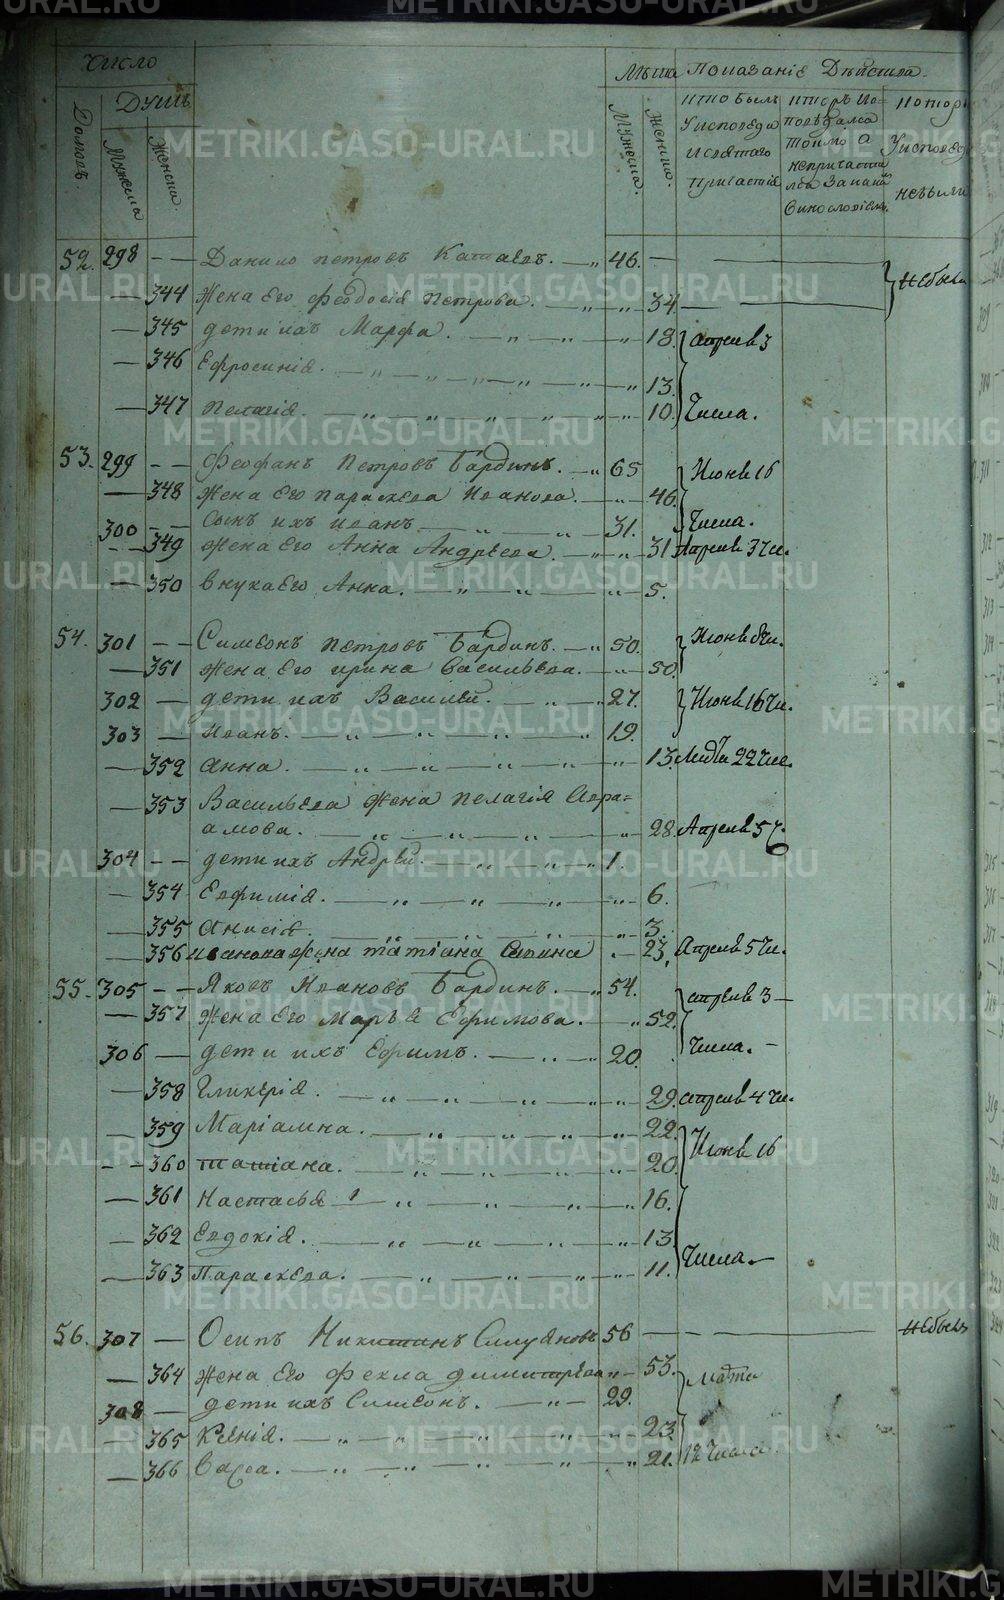 число
Душъ
Домовъ.
Мужеска
Женска.
Лѣта
Показаніе Дѣйства.
Мужеска.
Женска.
кто былъ
Уисповеди
исвятаго
причастія
А
Уисповеди
небыли
52. 298 — — Данило петровъ — „ 46. — небыли
— 344 жена Его феодосія петрова. „ „ 34.
— 345 дети ихъ Марфа. — „ — „ — „ 18. апреля 3
— 346 Ефросинія. — „ — „ — „ — „ — „ 13.
— 347 пелагія. — „ „ „ „ „ 10. Числа.
53. 299 — — Феофанъ Петровъ Бардинъ. — „ 65 Июня 16
— 348 жена Его параскева Иванова. — „ — 46.
300 — — сынъ ихъ иванъ — „ — 31. Числа.
— — 349 жена Его Анна Андреева. — „ „ 31 Апреля 3 чи.
— 350 внука Его Анна. — „ — „ — „ 5.
54. 301 — — Симеонъ петровъ Бардинъ. — „ 50. Июня
— 351 жена Его ирина Васильева. — „ — 50.
302 — дети ихъ Василей. — „ — „ 27. Июня 16 чи.
303 — Иванъ. — „ „ „ „ 19.
— 352 анна. — „ „ „ „ „ 13. 22 чис.
— 353 Васильева жена пелагія Авра=
амова. — „ — „ — „ — „ 28. Апреля 5 ч.
304 — — дети ихъ Андрей. — „ „ „ 1.
— 354 Евфимія. — „ — „ — „ — „ 6.
— 355 Анисія. — „ „ „ „ 3.
— 356 иванова жена татіана — 23, Апреля 5 чи.
55. 305 — — Яковъ Ивановъ Бардинъ. — „ 54. апреля 3 —
— 357 жена Его Марья Ефимова. — „ 52.
306 — дети ихъ Ефимъ. — „ — „ 20. Числа. —
— 358 Гликерія. — „ „ „ „ 29. апреля 4 чи.
— 359 Маріамна. — „ — „ — „ — „ 22. Июня 16
— — 360 татіана. — „ — „ — „ — „ 20.
— 361 Настасья — „ — „ — „ 16.
— 362 Евдокія. — „ — „ — „ — „ 13.
— 363 Параскева. — „ — „ — „ — „ 11. Числа. —
56. 307 — Осипъ 56 — — — небылъ
— 364 жена Его Фекла димитрева „ — 53.
308 — дети ихъ Симеонъ. — „ — 29.
— 365 Ксенія. — „ „ „ „ „ 23
— 366 васса. — „ „ „ „ „ 21. 12 Числа
METRIKI.GASO-URAL.RU